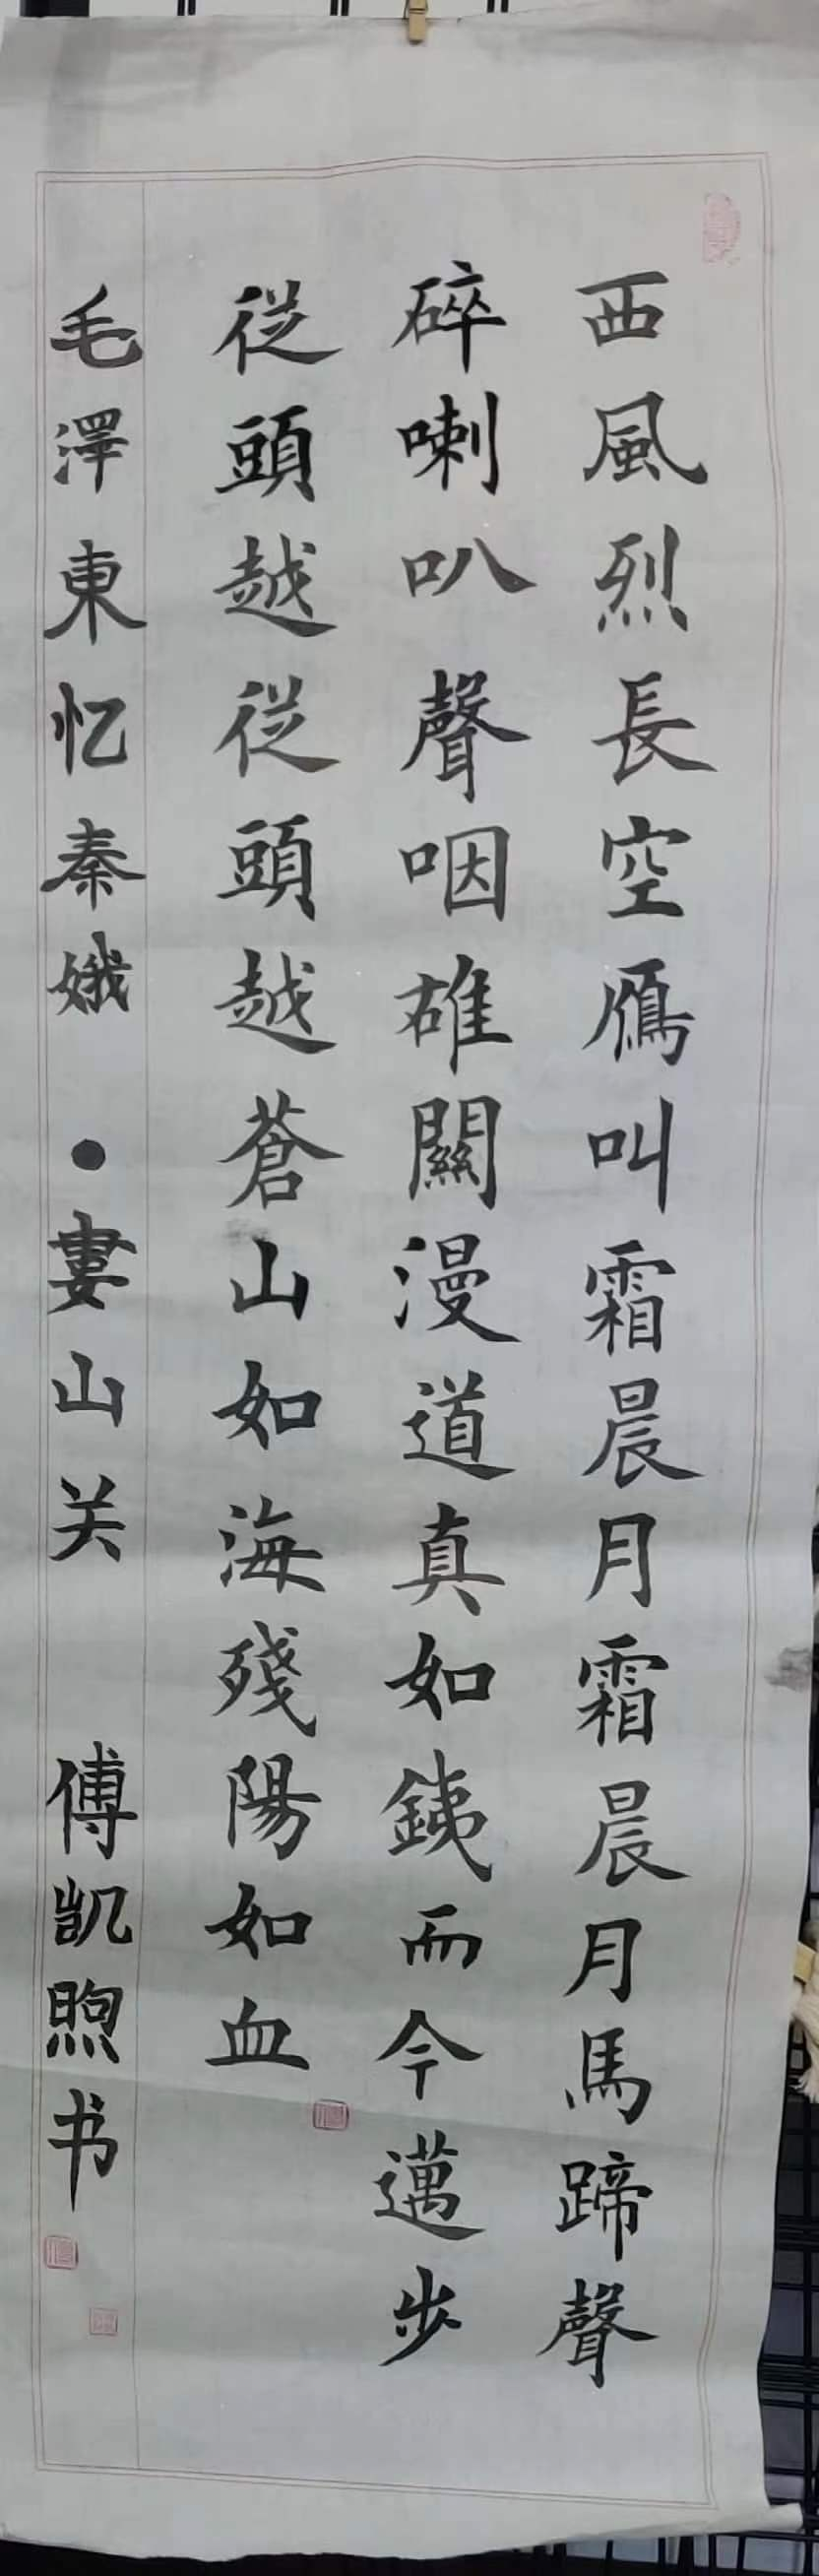 西風烈長空鴈叫霜晨月霜晨月馬蹄聲
碎喇叭聲咽雄關漫道真如銕而今邁步
從頭越從頭越蒼山如海殘陽如血
毛澤東忆秦娥•婁山关 傅凯煦书